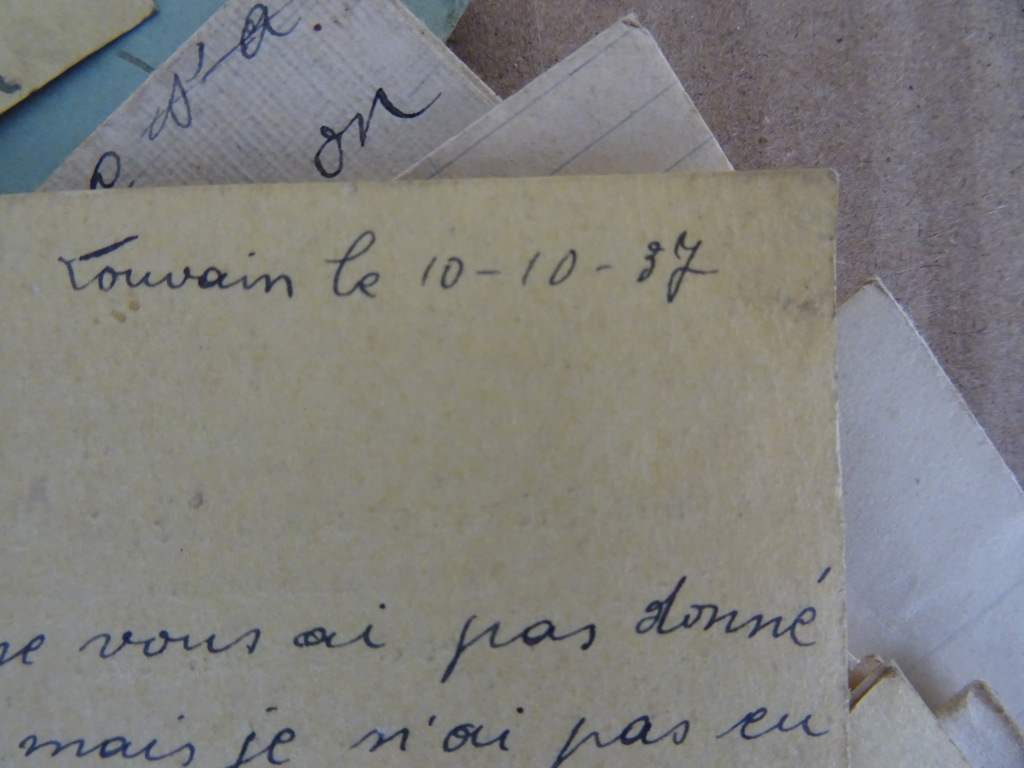 on
Louvain le 10-10-37
ne vous ai pas donné
mais je n'ai pas eu